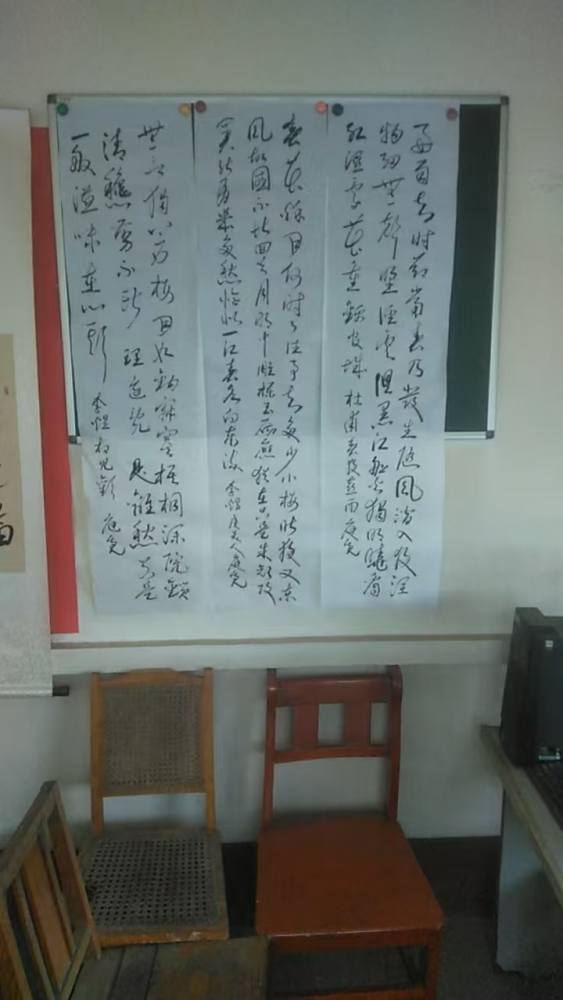 好雨知时节当春乃發生随风潜入夜润
物细無声野径云俱黑江船火独明晓看
红湿处花重锦官城 杜甫春夜喜雨庭尧
春花秋月何时了往事知多少小楼昨夜又东
风故国不堪回首月明中雕栏玉砌应犹在只是朱颜改
君能有几多愁恰似一江春水向东流 李煜虞美人庭尧
無言独上西楼月如钩寂寞梧桐深院锁
清秋剪不断理还乱是離愁别是
一般滋味在心头 李煜相见欢 庭尧